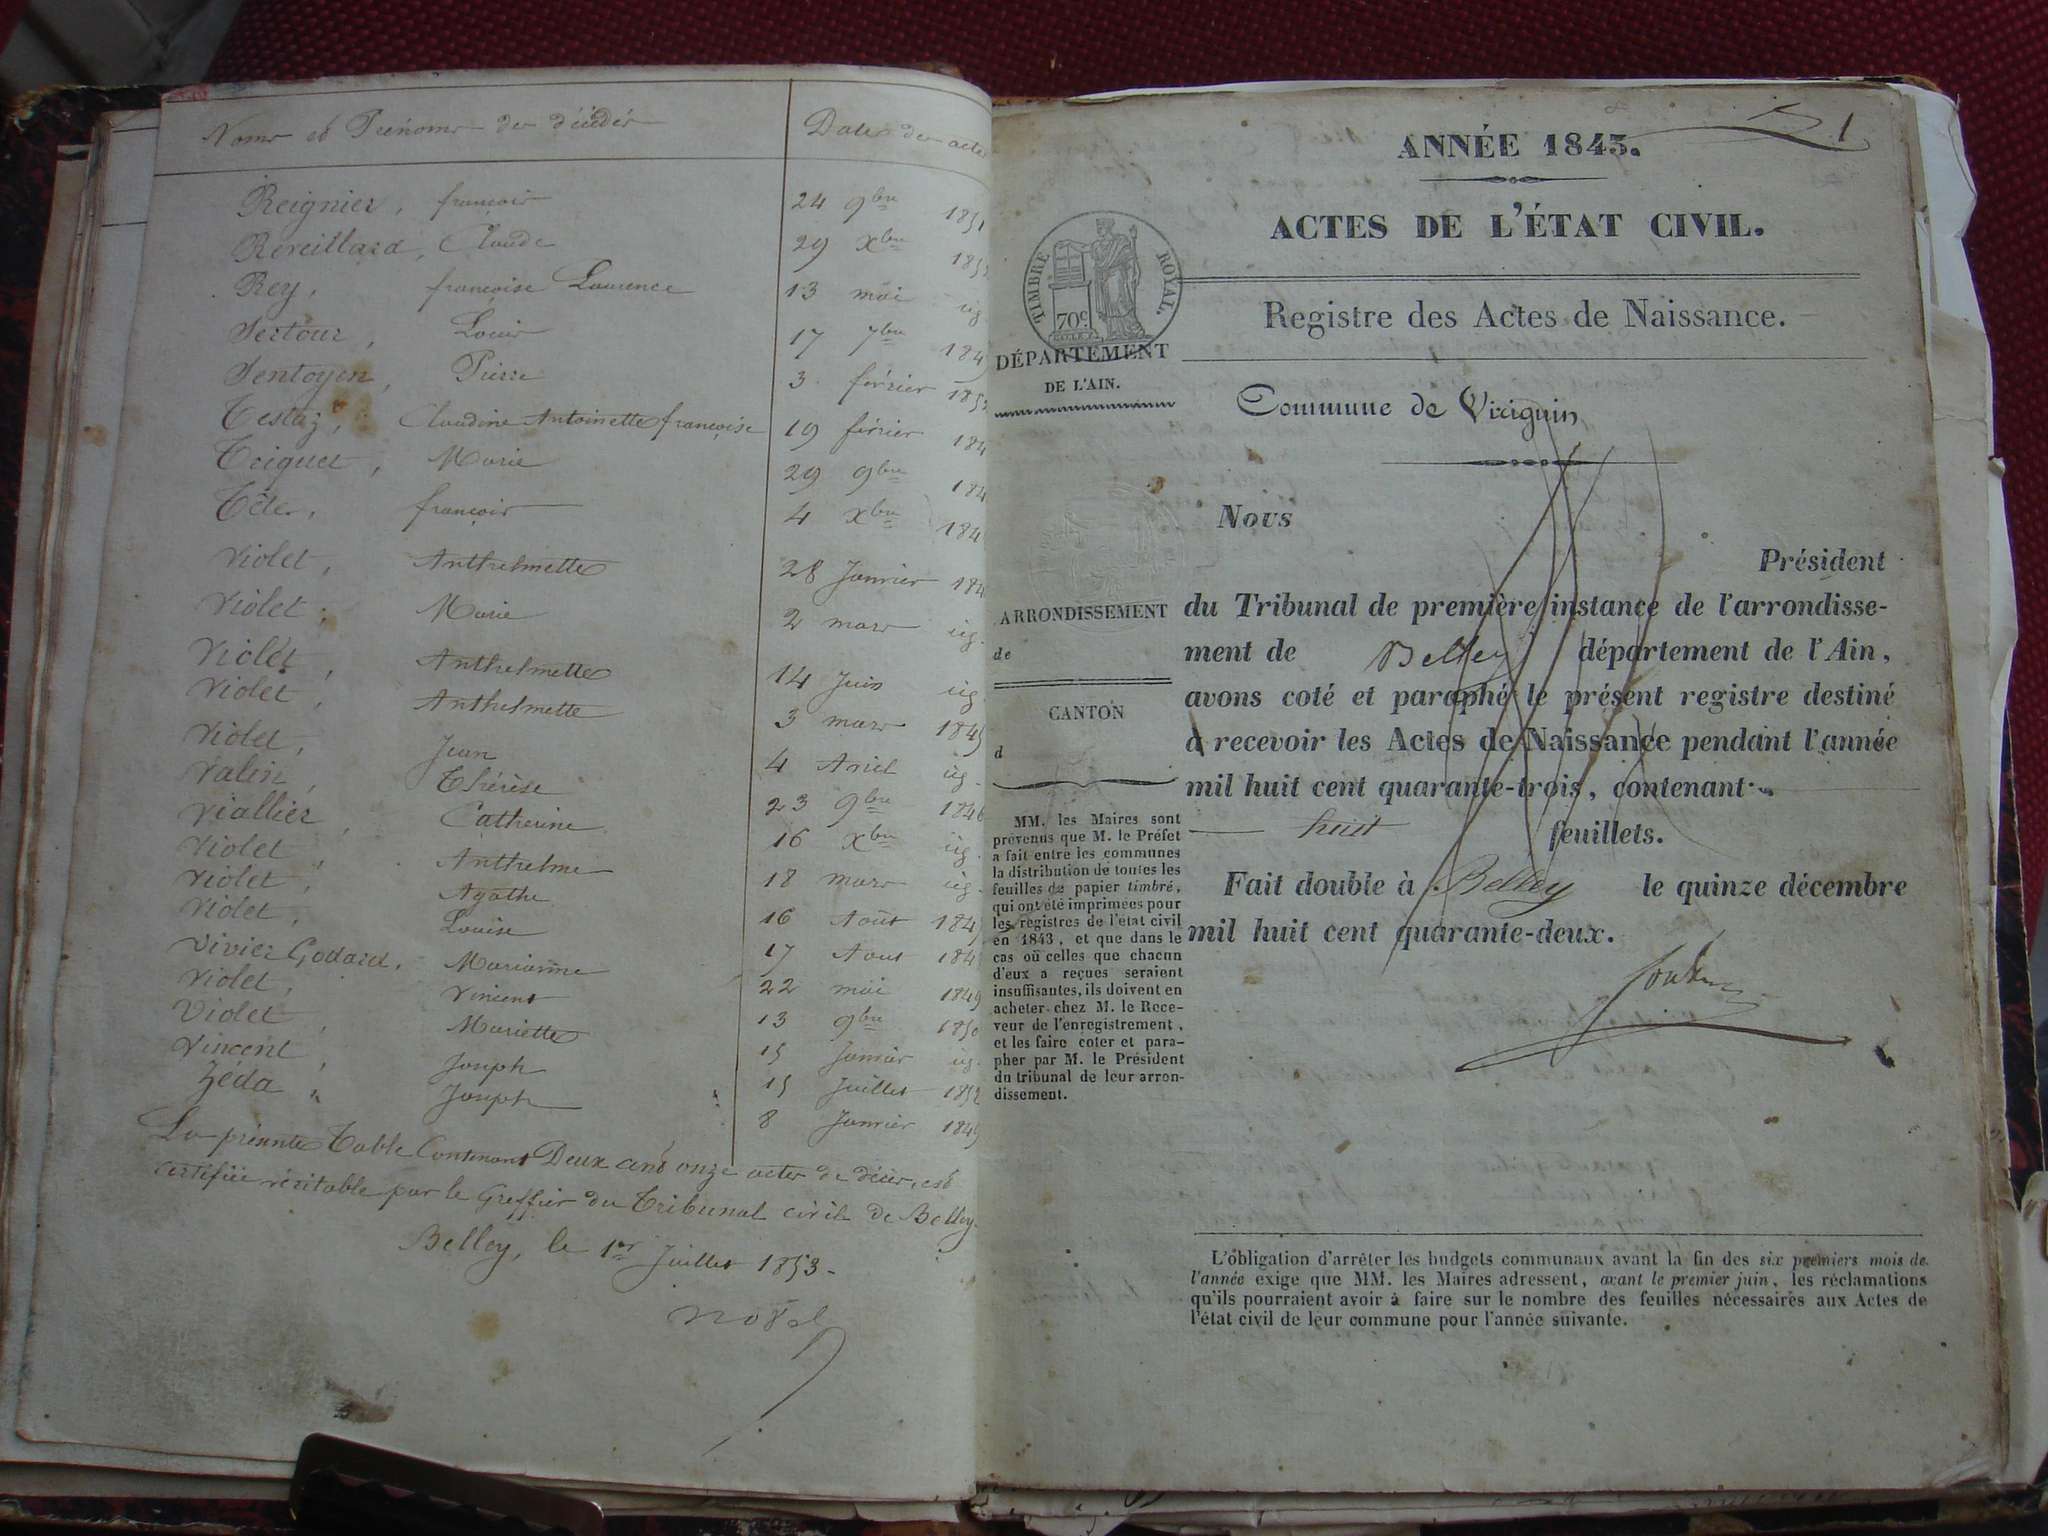 Noms et Prénoms des décédés
Dates des actes
Reignier, françois 24 9bre 1851
Reveillard, Claude 29 Xbre 185
Rey, françoise Laurence 13 mai id.
Sertour, Louis 17 7bre 184
Sentoyen, Pierre 3 février 185
Testaz, Claudine Antoinette françoise 19 février 184
Triquet, Marie 29 9bre 184
Têter, françois 4 Xbre 184
Violet, Anthelmette 28 Janvier 184
Violet, Marie 2 mars id.
Violet, Anthelmette 14 Juin id.
Violet, Anthelmette 3 mars 1845
Violet, Jean 4 Avril id.
Valin, Thérèse 23 9bre 1846
Viallier, Catherine 16 Xbre id.
Violet, Anthelme 18 mars id.
Violet, Agathe 16 Août 184
Violet, Louise 17 Aout 184
Vivier Godard, Marianne 22 mai 1849
Violet, Vincent 13 9bre 1850
Violet, Mariette 15 Janvier id.
Vincent, Joseph 15 Juillet 1852
Zéda, Joseph 8 Janvier 1845
La présente Table Contenant Deux cent onze actes de décès, est
certifiée véritable par le Greffier du Tribunal civil de Belley.
Belley, le 1er Juillet 1853.
1
ANNÉE 1843.
ACTES DE L'ÉTAT CIVIL.
TIMBRE ROYAL.
70c
Registre des Actes de Naissance.
DÉPARTEMENT
DE L'AIN.
Commune de Virignin
Nous
Président
ARRONDISSEMENT
de
CANTON
d
du Tribunal de première instance de l'arrondisse-
ment de Belley département de l'Ain,
avons coté et paraphé le présent registre destiné
à recevoir les Actes de Naissance pendant l'année
mil huit cent quarante-trois, contenant
huit feuillets.
Fait double à Belley le quinze décembre
mil huit cent quarante-deux.
MM. les Maires sont
prévenus que M. le Préfet
a fait entre les communes
la distribution de toutes les
feuilles de papier timbré,
qui ont été imprimées pour
les registres de l'état civil
en 1843, et que dans le
cas où celles que chacun
d'eux a reçues seraient
insuffisantes, ils doivent en
acheter chez M. le Rece-
veur de l'enregistrement,
et les faire coter et para-
pher par M. le Président
du tribunal de leur arron-
dissement.
L'obligation d'arrêter les budgets communaux avant la fin des six premiers mois de
l'année exige que MM. les Maires adressent, avant le premier juin, les réclamations
qu'ils pourraient avoir à faire sur le nombre des feuilles nécessaires aux Actes de
l'état civil de leur commune pour l'année suivante.